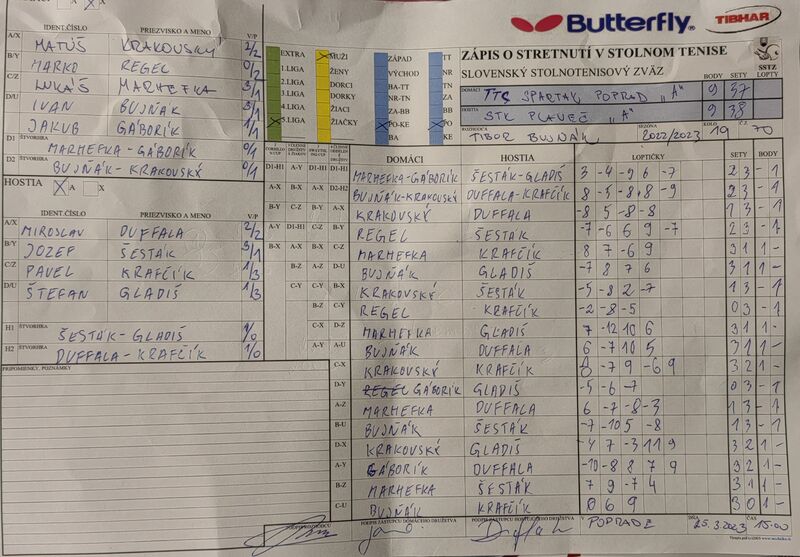 Butterfly
TIBHAR
ZÁPIS O STRETNUTÍ V STOLNOM TENISE
SLOVENSKÝ STOLNOTENISOVÝ ZVÄZ
SSTZ
BODY SETY LOPTY
DOMÁCI TTC SPARTAK POPRAD „A“ 9 37
HOSTIA STK PLAVEČ „A“ 9 38
ROZHODCA TIBOR BUJŇÁK SEZÓNA 2022/2023 KOLO 19 Č.Z. 70
EXTRA
1.LIGA
2.LIGA
3.LIGA
4.LIGA
X 5.LIGA
X MUŽI
ŽENY
DORCI
DORKY
ŽIACI
ŽIAČKY
ZÁPAD
VÝCHOD
BA-TT
NR-TN
ZA-BB
X PO-KE
BA
TT
NR
TN
ZA
BB
X PO
KE
IDENT.ČÍSLO PRIEZVISKO A MENO V/P
A/X MATÚŠ KRAKOVSKÝ 2/2
B/Y MARKO REGEL 0/2
C/Z LUKÁŠ MARHEFKA 3/1
D/U IVAN BUJŇÁK 3/1
JAKUB GÁBORÍK 1/1
D1 ŠTVORHRA MARHEFKA-GÁBORÍK 0/1
D2 ŠTVORHRA BUJŇÁK-KRAKOVSKÝ 0/1
HOSTIA X A X
IDENT.ČÍSLO PRIEZVISKO A MENO V/P
A/X MIROSLAV DUFFALA 2/2
B/Y JOZEF ŠESTÁK 3/1
C/Z PAVEL KRAFČÍK 1/3
D/U ŠTEFAN GLADIŠ 1/3
H1 ŠTVORHRA ŠESTÁK-GLADIŠ 1/0
H2 ŠTVORHRA DUFFALA-KRAFČÍK 1/0
PRIPOMIENKY, POZNÁMKY
DOMÁCI HOSTIA LOPTIČKY SETY BODY
D1-H1 A-Y D1-H1 D1-H1 MARHEFKA-GÁBORÍK ŠESTÁK-GLADIŠ 3 -4 -9 6 -7 2 3 - 1
A-X B-X A-X D2-H2 BUJŇÁK-KRAKOVSKÝ DUFFALA-KRAFČÍK 8 -5 -8 8 -9 2 3 - 1
B-Y C-Z B-Y A-X KRAKOVSKÝ DUFFALA -8 5 -8 -8 1 3 - 1
A-Y D1-H1 C-Z B-Y REGEL ŠESTÁK -7 -6 6 9 -7 2 3 - 1
B-X A-X B-X C-Z MARHEFKA KRAFČÍK 8 7 -6 9 3 1 1 -
B-Z A-Z D-U BUJŇÁK GLADIŠ -7 8 7 6 3 1 1 -
C-Y C-Y B-X KRAKOVSKÝ ŠESTÁK -5 -8 2 -7 1 3 - 1
B-Z C-Y REGEL KRAFČÍK -2 -8 -5 0 3 - 1
C-X D-Z MARHEFKA GLADIŠ 7 -12 10 6 3 1 1 -
A-Y A-U BUJŇÁK DUFFALA 6 -7 10 5 3 1 1 -
C-X KRAKOVSKÝ KRAFČÍK 8 -7 9 -6 9 3 2 1 -
D-Y GÁBORÍK GLADIŠ -5 -6 -7 0 3 - 1
A-Z MARHEFKA DUFFALA 6 -7 -8 -3 1 3 - 1
B-U BUJŇÁK ŠESTÁK -7 -10 5 -8 1 3 - 1
D-X KRAKOVSKÝ GLADIŠ -4 7 -3 11 9 3 2 1 -
A-Y GÁBORÍK DUFFALA -10 -8 8 7 9 3 2 1 -
B-Z MARHEFKA ŠESTÁK 7 9 -7 4 3 1 1 -
C-U BUJŇÁK KRAFČÍK 0 6 9 3 0 1 -
PODPIS ROZHODCU PODPIS ZÁSTUPCU DOMÁCEHO DRUŽSTVA PODPIS ZÁSTUPCU HOSŤUJÚCEHO DRUŽSTVA V POPRADE DŇA 25.3.2023 ČAS 15:00